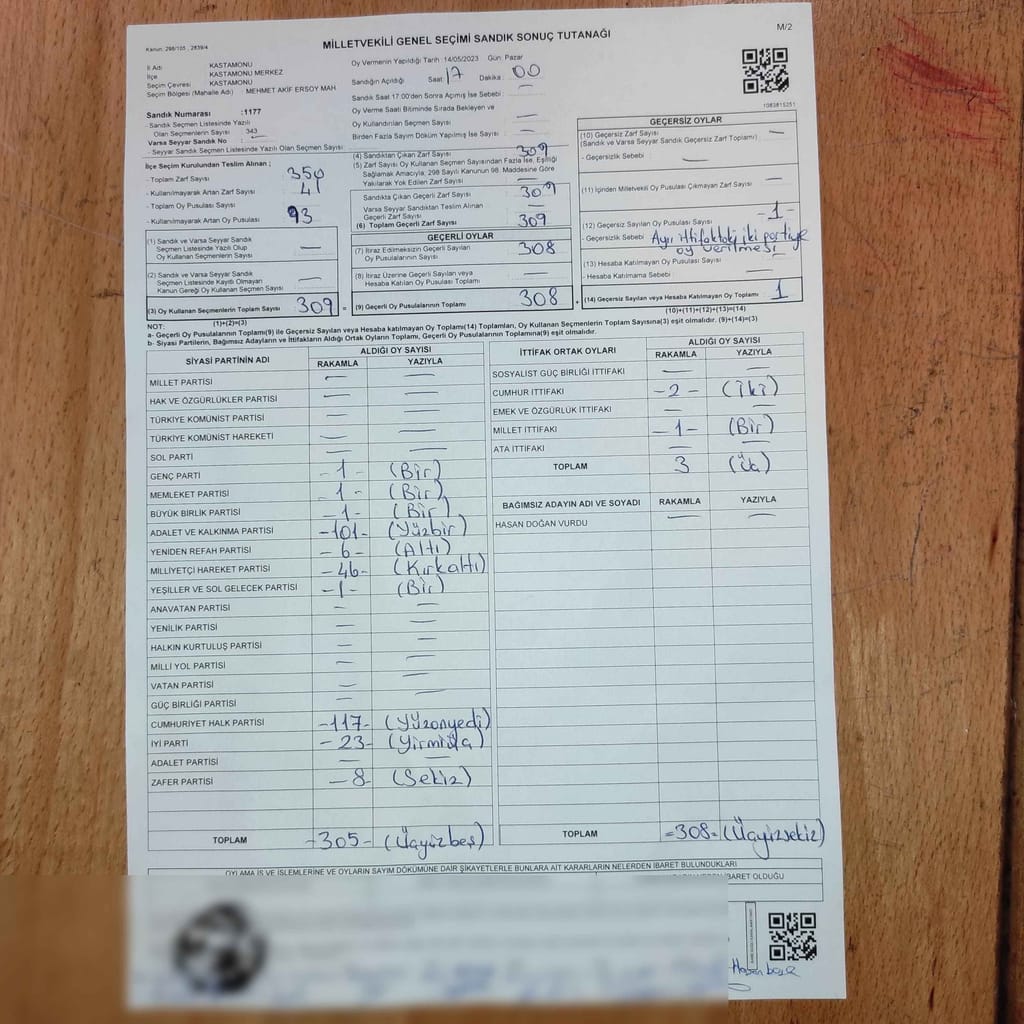 M/2
Kanun: 298/105 , 2839/4
MİLLETVEKİLİ GENEL SEÇİMİ SANDIK SONUÇ TUTANAĞI
İl Adı : KASTAMONU
İlçe : KASTAMONU MERKEZ
Seçim Çevresi : KASTAMONU
Seçim Bölgesi (Mahalle Adı) : MEHMET AKİF ERSOY MAH
Sandık Numarası : 1177
- Sandık Seçmen Listesinde Yazılı
Olan Seçmenlerin Sayısı : 343
Varsa Seyyar Sandık No : —
- Seyyar Sandık Seçmen Listesinde Yazılı Olan Seçmen Sayısı:
Oy Vermenin Yapıldığı Tarih :14/05/2023 Gün: Pazar
Sandığın Açıldığı Saat : 17 Dakika : 00
Sandık Saat 17:00'den Sonra Açımış İse Sebebi : —
Oy Verme Saati Bitiminde Sırada Bekleyen ve
Oy Kullandırılan Seçmen Sayısı —
Birden Fazla Sayım Döküm Yapılmış İse Sayısı : —
1083815251
İlçe Seçim Kurulundan Teslim Alınan ;
- Toplam Zarf Sayısı : 350
- Kullanılmayarak Artan Zarf Sayısı : 41
- Toplam Oy Pusulası Sayısı :
- Kullanılmayarak Artan Oy Pusulası : 93
(1) Sandık ve Varsa Seyyar Sandık
Seçmen Listesinde Yazılı Olup
Oy Kullanan Seçmenlerin Sayısı —
(2) Sandık ve Varsa Seyyar Sandık
Seçmen Listesinde Kayıtlı Olmayan
Kanun Gereği Oy Kullanan Seçmen Sayısı —
(3) Oy Kullanan Seçmenlerin Toplam Sayısı 309
(1)+(2)=(3)
(4) Sandıktan Çıkan Zarf Sayısı : 309
(5) Zarf Sayısı Oy Kullanan Seçmen Sayısından Fazla İse, Eşitliği
Sağlamak Amacıyla, 298 Sayılı Kanunun 98. Maddesine Göre
Yakılarak Yok Edilen Zarf Sayısı : —
Sandıkta Çıkan Geçerli Zarf Sayısı : 309
Varsa Seyyar Sandıktan Teslim Alınan
Geçerli Zarf Sayısı : —
(6) Toplam Geçerli Zarf Sayısı : 309
GEÇERLİ OYLAR
(7) İtiraz Edilmeksizin Geçerli Sayılan
Oy Pusulalarının Sayısı : 308
(8) İtiraz Üzerine Geçerli Sayılan veya
Hesaba Katılan Oy Pusulalarının Sayısı : —
(9) Geçerli Oy Pusulalarının Toplamı 308
GEÇERSİZ OYLAR
(10) Geçersiz Zarf Sayısı : —
(Sandık ve Varsa Seyyar Sandık Geçersiz Zarf Toplamı)
- Geçersizlik Sebebi : —
(11) İçinden Milletvekili Oy Pusulası Çıkmayan Zarf Sayısı : —
(12) Geçersiz Sayılan Oy Pusulası Sayısı : -1-
- Geçersizlik Sebebi : Ayrı ittifaktaki iki partiye
oy verilmesi
(13) Hesaba Katılmayan Oy Pusulası Sayısı : —
- Hesaba Katılmama Sebebi : —
(14) Geçersiz Sayılan veya Hesaba Katılmayan Oy Toplamı 1
(10)+(11)+(12)+(13)=(14)
NOT:
a- Geçerli Oy Pusulalarının Toplamı(9) ile Geçersiz Sayılan veya Hesaba katılmayan Oy Toplamı(14) Toplamları, Oy Kullanan Seçmenlerin Toplam Sayısına(3) eşit olmalıdır. (9)+(14)=(3)
b- Siyasi Partilerin, Bağımsız Adayların ve İttifakların Aldığı Ortak Oyların Toplamı, Geçerli Oy Pusulalarının Toplamına(9) eşit olmalıdır.
SİYASİ PARTİNİN ADI ALDIĞI OY SAYISI
RAKAMLA YAZIYLA
MİLLET PARTİSİ — —
HAK VE ÖZGÜRLÜKLER PARTİSİ — —
TÜRKİYE KOMÜNİST PARTİSİ — —
TÜRKİYE KOMÜNİST HAREKETİ — —
SOL PARTİ — —
GENÇ PARTİ -1- (Bir)
MEMLEKET PARTİSİ -1- (Bir)
BÜYÜK BİRLİK PARTİSİ -1- (Bir)
ADALET VE KALKINMA PARTİSİ -101- (Yüzbir)
YENİDEN REFAH PARTİSİ -6- (Altı)
MİLLİYETÇİ HAREKET PARTİSİ -46- (Kırkaltı)
YEŞİLLER VE SOL GELECEK PARTİSİ -1- (Bir)
ANAVATAN PARTİSİ — —
YENİLİK PARTİSİ — —
HALKIN KURTULUŞ PARTİSİ — —
MİLLİ YOL PARTİSİ — —
VATAN PARTİSİ — —
GÜÇ BİRLİĞİ PARTİSİ — —
CUMHURİYET HALK PARTİSİ -117- (Yüzonyedi)
İYİ PARTİ -23- (Yirmiüç)
ADALET PARTİSİ — —
ZAFER PARTİSİ -8- (Sekiz)
TOPLAM -305- (Üçyüzbeş)
İTTİFAK ORTAK OYLARI ALDIĞI OY SAYISI
RAKAMLA YAZIYLA
SOSYALİST GÜÇ BİRLİĞİ İTTİFAKI — —
CUMHUR İTTİFAKI -2- (İki)
EMEK VE ÖZGÜRLÜK İTTİFAKI — —
MİLLET İTTİFAKI -1- (Bir)
ATA İTTİFAKI — —
TOPLAM 3 (Üç)
BAĞIMSIZ ADAYIN ADI VE SOYADI RAKAMLA YAZIYLA
HASAN DOĞAN VURDU — —
TOPLAM =308- (Üçyüzsekiz)
OYLAMA İŞ VE İŞLEMLERİNE VE OYLARIN SAYIM DÖKÜMÜNE DAİR ŞİKAYETLERLE BUNLARA AİT KARARLARIN NELERDEN İBARET BULUNDUKLARI
İBARET OLDUĞU